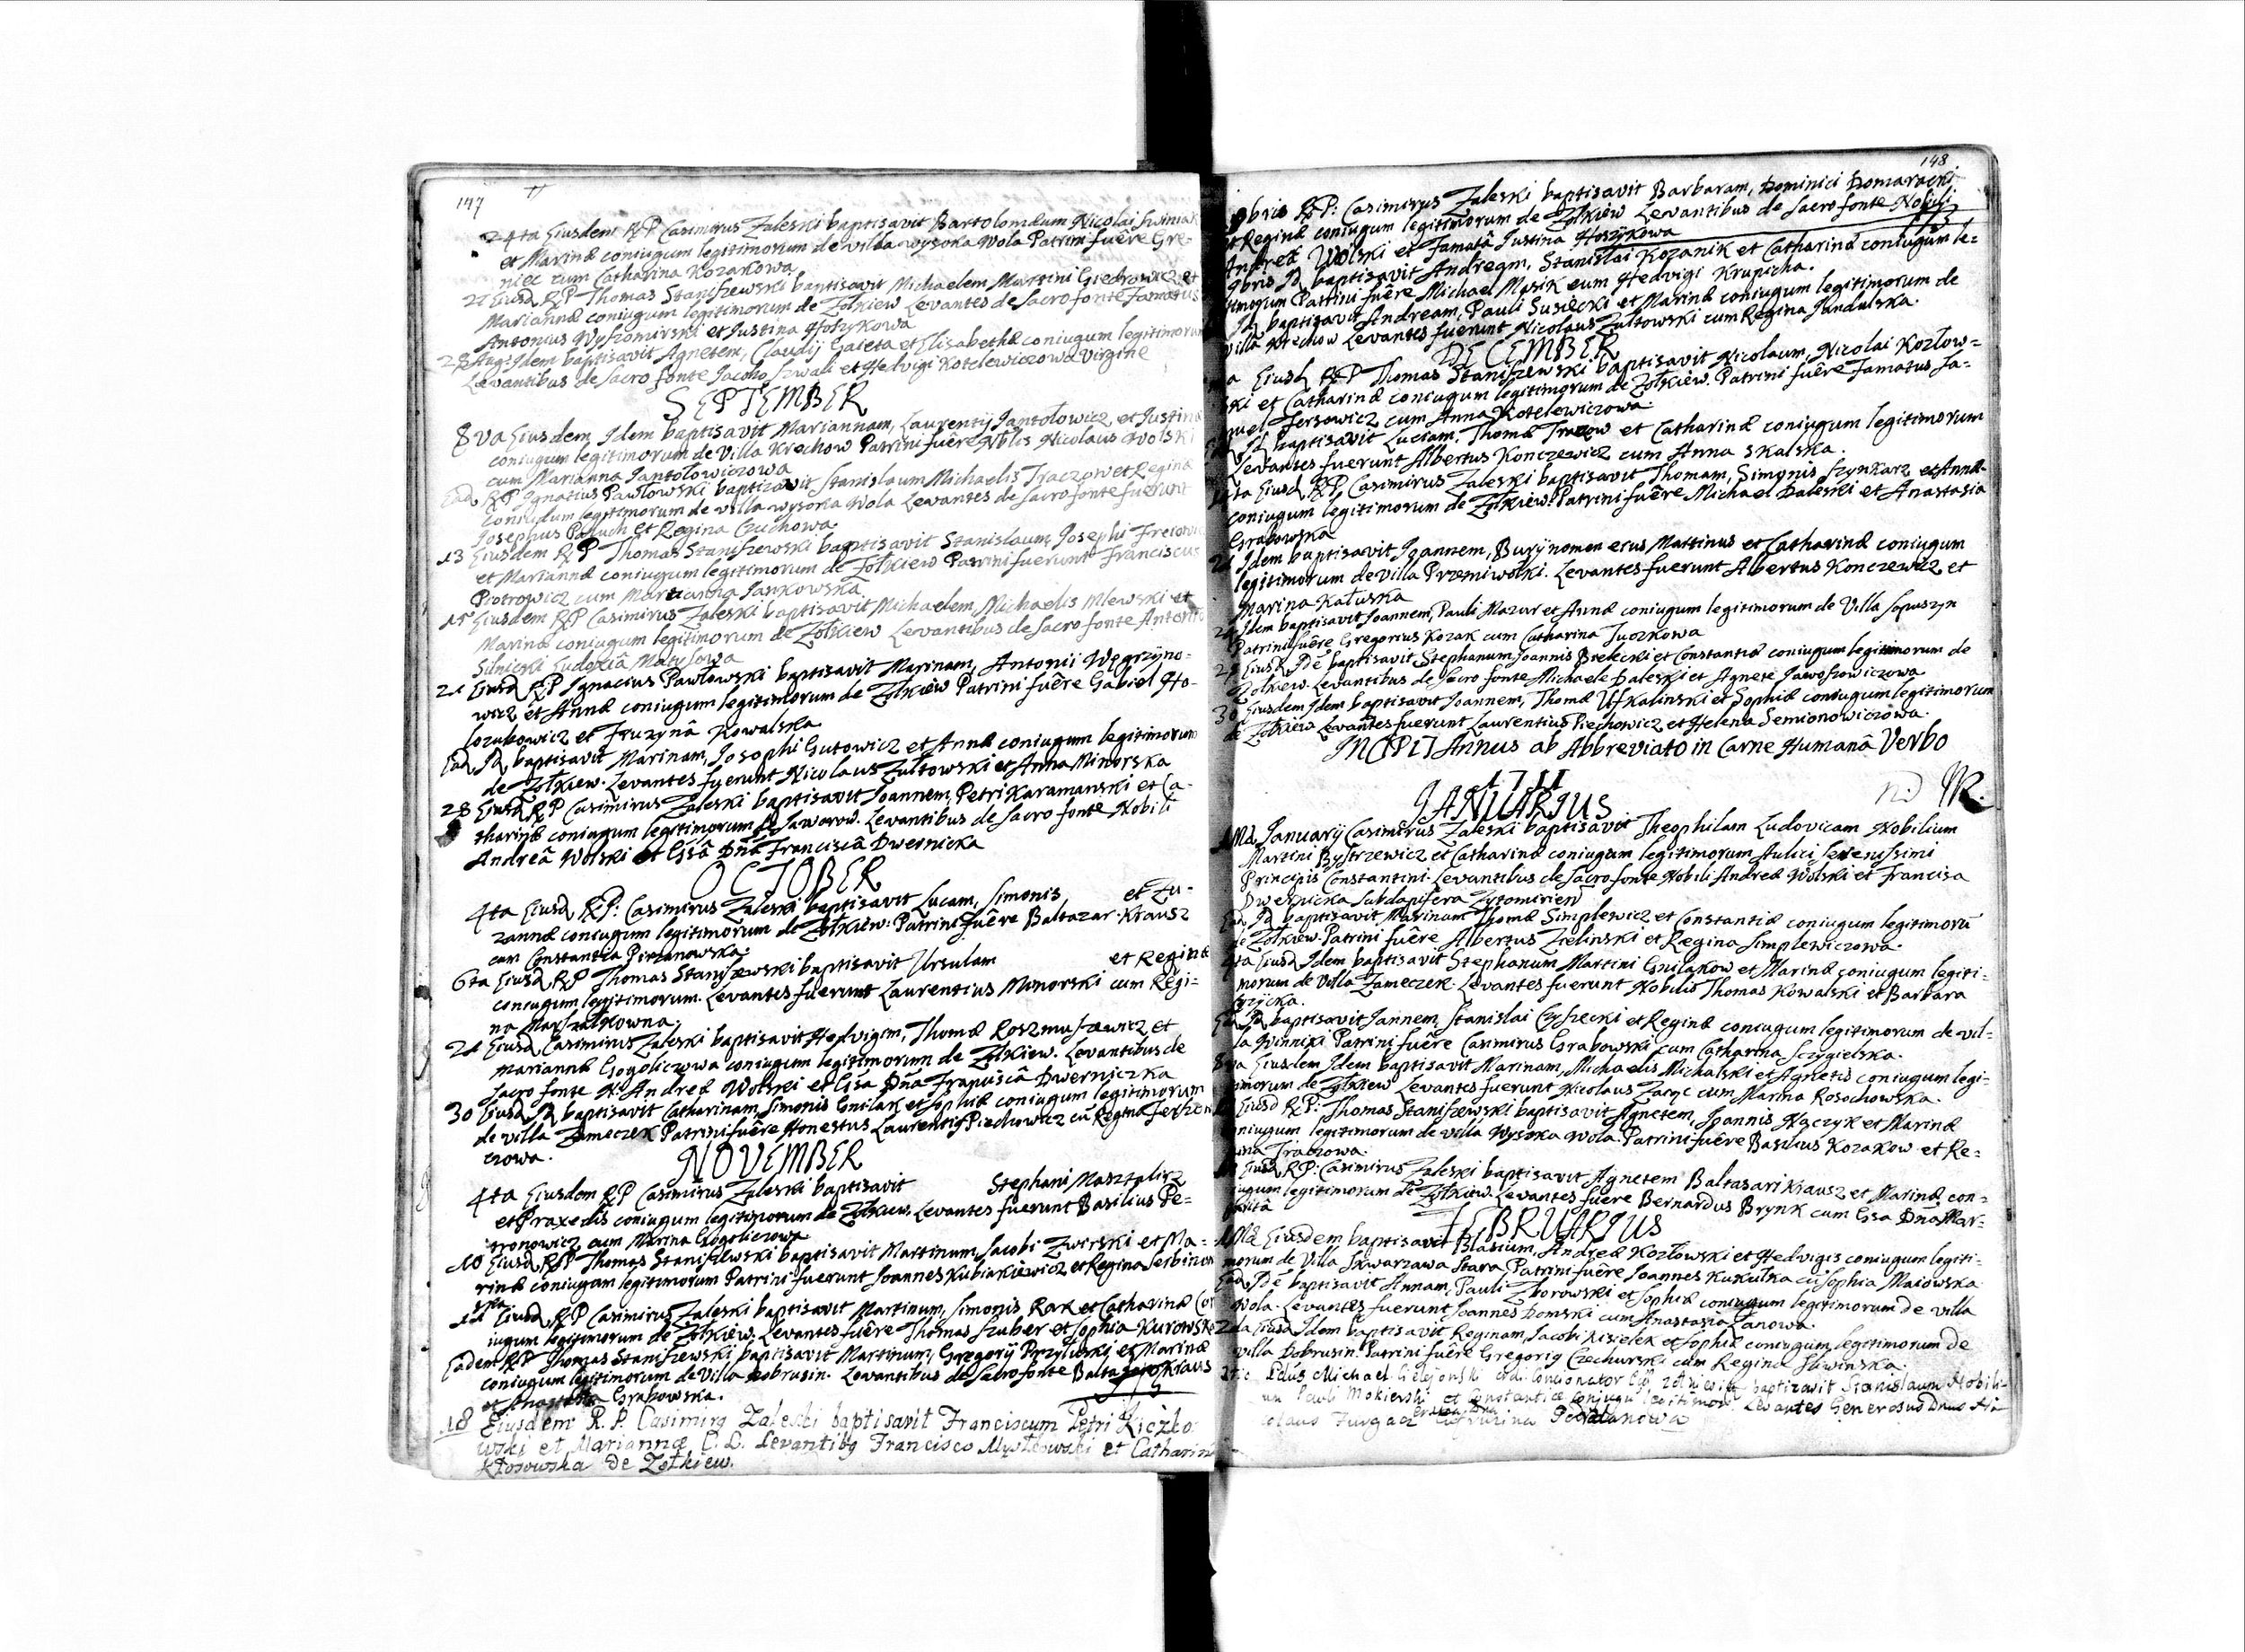 147
24ta Eiusdem RP Casimirus Zaleski baptisavit Bartolomæum Nicolai
et Marinæ coniugum legitimorum de villa wysoka Wola Patrini fuêre Gre-
niec cum Catharina Kozakowa
Eiusd RP Thomas Staniszewski baptisavit Michaelem Martini et
Mariannæ coniugum legitimorum de Zolkiew Levantes de Sacro fonte Famatus
Antonius Wyszomirski et Justina Hoszykowa
28 Aug: Idem baptisavit Agnetem, Claudij Gaieta et Elisabethæ coniugum legitimorum
Levantibus de Sacro fonte Jacobo Szwali et Hedvigi Kotelewiczowa Virgine
SEPTEMBER
8va Eiusdem, Idem baptisavit Mariannam, Laurentij Jantołowicz et Justinæ
coniugum legitimorum de Villa Krechow Patrini fuêre Nblis Nicolaus Wolski
cum Marianna Jantołowiczowa
Ead RP Ignatius Pawłowski baptizavit Stanislaum Michaelis Traczow et Regina
coniugum legitimorum de villa wysoka Wola Levantes de Sacro fonte fuerunt
Josephus Paluch et Regina Czuchowa
13 Eiusdem RP Thomas Staniszewski baptisavit Stanislaum, Josephi
et Mariannæ coniugum legitimorum de Zołkiew Patrini fuerunt Franciscus
Piotrowicz cum Marianna Jankowska
15 Eiusdem RP Casimirus Zaleski baptisavit Michaelem, Michaelis Mlewski et
Marinæ coniugum legitimorum de Zołkiew Levantibus de Sacro fonte
Silnicki Eudoxiâ Matysowa
21 Eiusd RP Ignacius Pawłowski baptisavit Marinam, Antonii Węgrzyno-
wicz et Annæ coniugum legitimorum de Zołkiew Patrini fuêre Gabiel Ho-
lozubowicz et Fruzynâ Kowalska
Ead Id baptisavit Marinam, Josophi Gutowicz et Annæ coniugum legitimorum
de Zołkiew. Levantes fuerunt Nicolaus Zułtowski et Anna Minorska
28 Eiusd RP Casimirus Zaleski baptisavit Joannem, Petri Karamanski et Ca-
tharinæ coniugum legitimorum de Jaworow. Levantibus de Sacro fonte Nobili
Andreâ Wolski et Gsâ Dña Franciscâ Dwernicka
OCTOBER
4ta Eiusd RP: Casimirus Zaleski baptisavit Lucam, Simonis et Zu-
zannæ coniugum legitimorum de Zołkiew: Patrini fuêre Baltazar Krausz
cum Constantia
6ta Eiusd RP Thomas Staniszewski baptisavit Ursulam et Reginæ
coniugum legitimorum. Levantes fuerunt Laurentius Minorski cum Regi-
na Marszałkowna.
21 Eiusd Casimirus Zaleski baptisavit Hedvigem, Thomæ Roszmuszewicz et
mariannæ Gogoliczowa coniugum legitimorum de Zołkiew. Levantibus de
Sacro fonte N: Andreâ Wolski et Gsa Dña Dwerniczka
30 Eiusd Id baptisavit Catharinam, Simonis Gnilak et Sophiæ coniugum legitimorum
de villa Zameczek Patrini fuêre Honestus Laurentig Piechowicz cū Regina
czowa.
NOVEMBER
4ta Eiusdem RP Casimirus Zaleski baptisavit Stephani Masztalirz
et Praxedis coniugum legitimorum de Zołkiew. Levantes fuerunt Basilius Pe-
tronowicz cum Marina Gogoliczowa
10 Eiusd RP Thomas Staniszewski baptisavit Martinum, Jacobi Zwirski et Ma-
rinæ coniugum legitimorum Patrini fuerunt Joannes Kubiakiewicz et Regina Serbinow
ska
11 Eiusd RP Casimirus Zaleski baptisavit Martinum, Simonis Rak et Catharinæ Con
iugum legitimorum de Zołkiew. Levantes fuêre Thomas Szuber et Sophia Kurowska
Eadem RP Thomas Staniszewski baptisavit Martinum, Gregorij Przyluski et Marinæ
coniugum legitimorum de Villa Dobrusin. Levantibus de Sacro fonte Krauś
et Grabowska.
18 Eiusdem R. P. Casimirg Zaleski baptisavit Franciscum Petri Kiczko
wski et Mariannæ C. L. Levantibg Francisco et Catharin
Kłosowska de Zołkiew.
148
9bris RP: Casimirus Zaleski baptisavit Barbaram, Dominici Domaracki
et Reginæ coniugum legitimorum de Zołkiew Levantibus de Sacro fonte Nobili
Andreâ Wolski et Famatâ Justina Hoszykowa
9bris Id baptisavit Andream, Stanislai Kozanik et Catharinæ coniugum le=
timorum Patrini fuêre Michael Masik cum Hedvigi Krupicha.
Id baptisavit Andream, Pauli Susiecki et Marinæ coniugum legitimorum de
villa Krechow Levantes fuerunt Nicolaus Zułtowski cum Regina Jandulska.
DECEMBER
Eiusd RP Thomas Staniszewski baptisavit Nicolaum, Nicolai Kozłow=
ski et Catharinæ coniugum legitimorum de Zołkiew. Patrini fuêre Famatus Sa=
muel Fersowicz cum Anna Kotelewiczowa.
Id baptisavit Luciam, Thomæ et Catharinæ coniugum legitimorum
Levantes fuerunt Albertus Konczewicz cum Anna Skalska.
Eiusd RP Casimirus Zaleski baptisavit Thomam, Simonis Szynkarz et Annæ
coniugum legitimorum de Zołkiew: Patrini fuêre Michael Daleski et Anastasia
Grabowska
Idem baptisavit Joannem, nomen eius Martinus et Catharinæ coniugum
legitimorum de villa Przemiwolki. Levantes fuerunt Albertus Konczewicz et
Marina Kałuska
Idem baptisavit Joannem, Pauli Mazur et Annæ coniugum legitimorum de Villa Sopuszyn
Patrini fuêre Gregorius Kozak cum Catharina
Eiusd Idē baptisavit Stephanum, Joannis Bielecki et Constantiæ coniugum legitimorum de
Zołkiew. Levantibus de Sacro fonte Michaele Daleski et Agnete Jaroszowiczowa
30 Eiusdem Idem baptisavit Joannem, Thomæ et Sophiæ coniugum legitimorum
de Zołkiew Levantes fuerunt Laurentius Piechowicz et Helena Semionowiczowa.
INCIPIT Annus ab Abbreviato in Carne Humanâ Verbo
1711
JANUARIUS
1Ma Januarij Casimirus Zaleski baptisavit Theophilam Ludovicam Nobilium
Martini Bystrzewicz et Catharinæ coniugum legitimorum Aulici Serenissimi
Principis Constantini. Levantibus de Sacro fonte Nobili Andreâ Wolski et Francisa
Dwernicka Subdapifera
Ead Id baptisavit Marinam Thomæ Simplewicz et Constantiæ coniugum legitimorū
de Zołkiew. Patrini fuêre Albertus Zielinski et Regina Simplewiczowa.
Eiusd Idem baptisavit Stephanum Martini Gnilakow et Marinæ coniugum legiti=
morum de Villa Zameczek. Levantes fuerunt Nobilis Thomas Kowalski et Barbara
Ead Id baptisavit Joannem, Stanislai Czyszecki et Reginæ coniugum legitimorum de vil-
la Winniki Patrini fuêre Casimirus Grabowski cum Catharina Sczygielska.
8va Eiusdem Idem baptisavit Marinam, Michaelis Michalski et Agnetis coniugum legi=
timorum de Zołkiew Levantes fuerunt Nicolaus Zaręc cum Marina Rosochowska.
Eiusd RP: Thomas Staniszewski baptisavit Agnetem, Joannis Haczyk et Marinæ
coniugum legitimorum de villa Wysoka Wola. Patrini fuêre Basilius Kozakow et Re=
gina Traczowa.
Eiusd RP: Casimirus Zaleski baptisavit Agnetem Baltasari Krausz et Marinæ con=
iugum legitimorum de Zołkiew. Levantes fuere Bernardus Brynk cum Gsa Dña Mar=
FEBRUARIUS
1Ma Eiusdem baptisavit Blasium, Andreæ Kozłowski et Hedvigis coniugum legiti=
morum de Villa Skwarzawa Stara. Patrini fuêre Joannes Kukułka cū Sophia Maiowska
Ead Idē baptisavit Annam, Pauli Zborowski et Sophiæ coniugum legitimorum de villa
Wola. Levantes fuerunt Joannes Domski cum Anastasia Łanowa.
2da Eiusd Idem baptisavit Reginam, Jacobi Kisielek et Sophiæ coniugum legitimorum de
villa Dobrusin. Patrini fuêre Gregorig Czechurski cum Regina Sliwinska.
Michael concionator baptizavit Stanislaum Nobili-
um Pauli Mokierski et Constantiæ coniugū legitimor. Levantes Generosus Dnus Ni-
colaus Furgacz